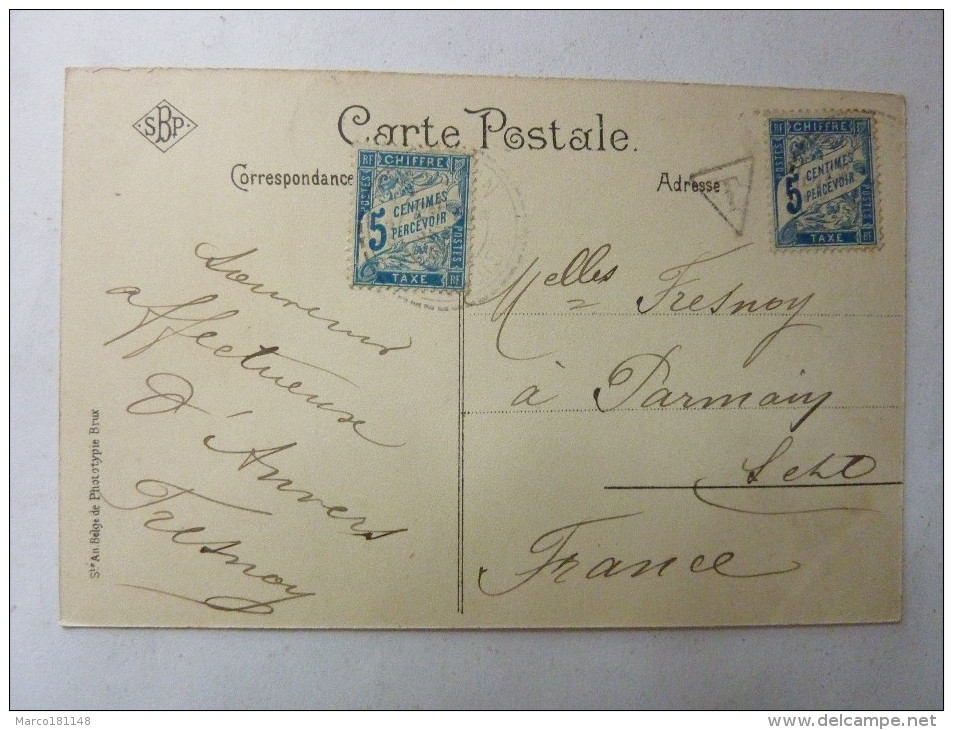 SBP
Carte Postale.
Correspondance
Adresse
RF CHIFFRE
POSTES
5 CENTIMES
à
PERCEVOIR
POSTES
TAXE RF
RF CHIFFRE
POSTES
5 CENTIMES
à
PERCEVOIR
POSTES
TAXE RF
T
Souvenir
affectueux
d'Anvers
Fresnoy
Melles Fresnoy
à Parmain
S et O
France
Sté An. Belge de Phototypie Brux
Marco181148
delcampe.net